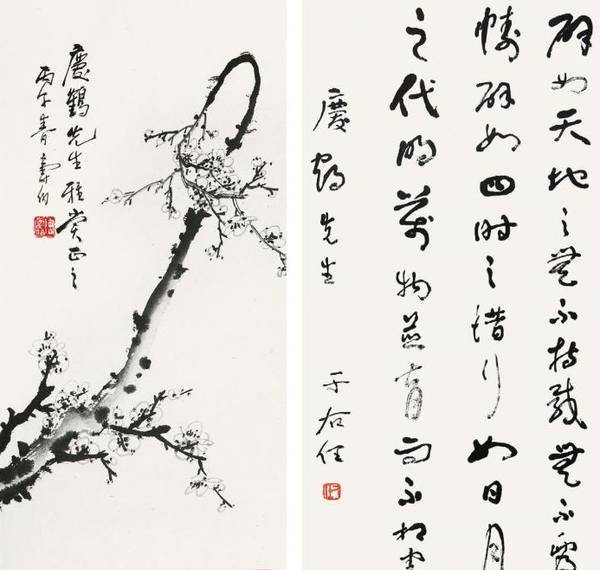 慶鶴先生雅賞正之
丙午春壽伯
辟如天地之無不持載無不覆
幬辟如四時之錯行如日月
之代明萬物並育而不相害
慶鶴先生
于右任